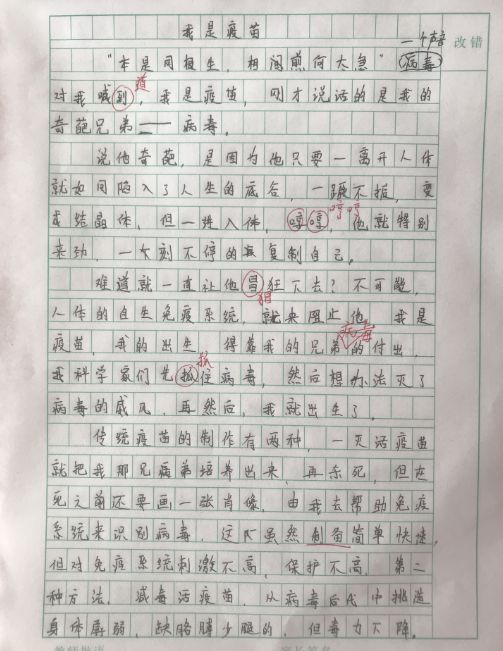 我是疫苗
一个声音 改错
“本是同根生,相煎何太急”病毒
道
对我喊到,我是疫苗,刚才说话的是我的
奇葩兄弟——病毒。
说他奇葩,是因为他只要一离开人体
就如同陷入了人生的底谷,一蹶不振,变
成结晶体,但一进入体,哼哼,他就特别
哼哼
来劲,一刻不停的复制自己。
难道就一直让他冒狂下去?不可能,
猖
人体的自生免疫系统,就来阻止他。我是
病毒
疫苗,我的出生,得靠我的兄弟的付出,
抓
我科学家们先抓住病毒,然后想办法灭了
病毒的威风,再然后,我就出生了。
传统疫苗的制作有两种,一灭活疫苗
就把我那兄病弟培养出来,再杀死,但在
死之前还要画一张肖像,由我去帮助免疫
系统来识别病毒,这虽然制备简单快速,
但对免疫系统刺激不高,保护不高。第二
种方法,减毒活疫苗,从病毒后代中挑选
身体孱弱,缺胳膊少腿的,但毒力下降。
教师批语 家长签名